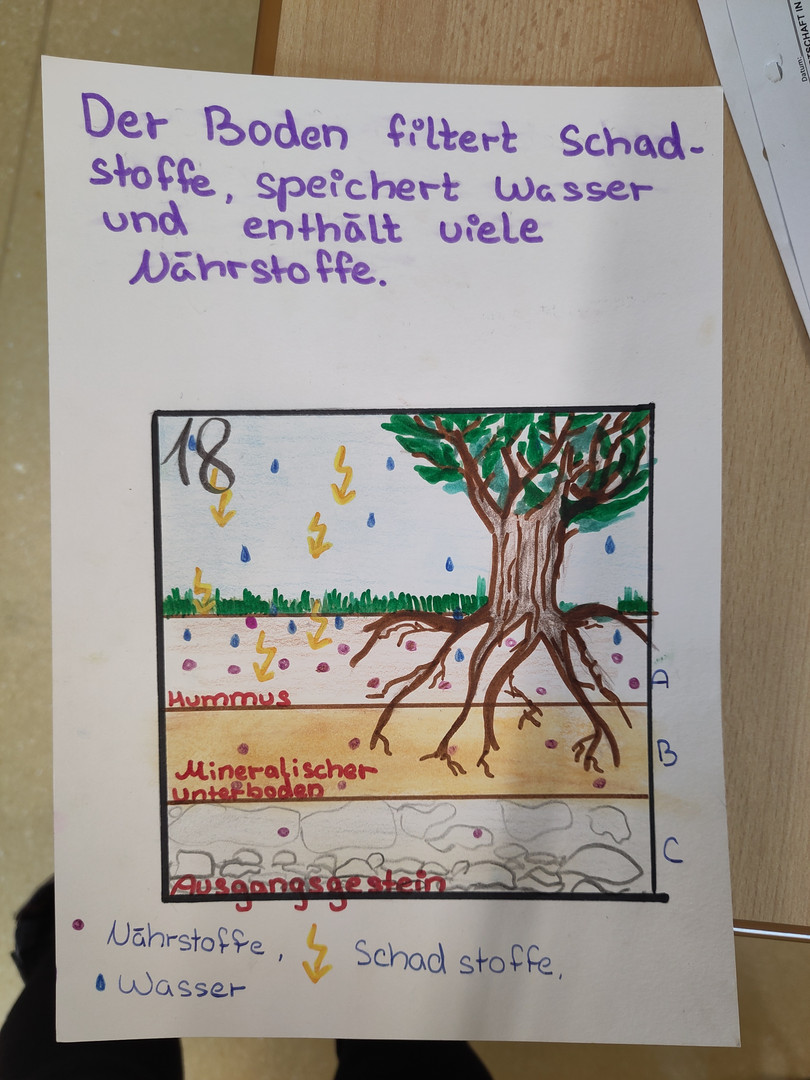 Der Boden filtert Schad-
stoffe, speichert Wasser
und enthält viele
Nährstoffe.
18
A
Hummus
B
Mineralischer
Unterboden
C
Ausgangsgestein
Nährstoffe, Schadstoffe,
Wasser
Datum: